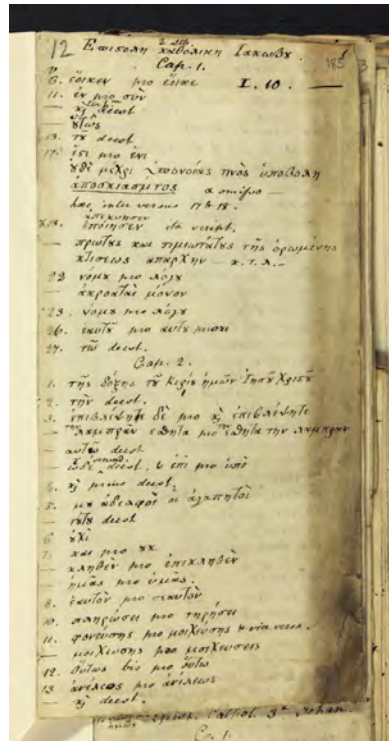 12 Επιςολη καθολικη Ιακωβου.
Cap. 1.
6. ἔοικεν pro ἔοικε I. 10. —
11. ἐν pro σὺν
— deest
— οὕτως
13. τοῦ deest
17. ἔςι pro ἔνι
οὐδὲ μέχρι ὑπονοίας τινὸς ὑποβολὴ
ἀποσκιασματος a
haec inter versus 17 & 18.
ἀπεκύησεν
x18. ἐποίησεν ita
— πρώτους και τιμιωτάτους τῆς ὁρωμένης
κτίσεως ἀπαρχήν — κ.τ.λ.
22 νόμου pro λόγου
— ἀκροαταὶ μόνον
23. νόμου pro λόγου
26. ἑαυτοῦ pro αυτοῦ
27. τῷ deest.
Cap. 2.
1. τῆς δόξης τοῦ Κυρίου ἡμῶν Ἰησοῦ Χριςοῦ
2. τὴν deest.
3. ἐπιβλέψητε δὲ pro καὶ ἐπιβλέψητε
— τὴν λαμπρὰν ἐσθῆτα pro ἐσθῆτα τὴν λαμπρὰν
— αυτῷ deest
— ὧδε deest. & ἐπὶ pro ὑπὸ
4. καὶ deest.
5. μου ἀδελφοὶ οἱ ἀγαπητοὶ
— τούτου deest
6 οὐχὶ
7. και pro οὐκ
— κληθὲν pro ἐπικληθὲν
— ἡμᾶς pro ὑμᾶς.
8. ἑαυτὸν pro σεαυτὸν
10. πληρώσει pro τηρήσει
11. φονεύσῃς pro μοιχεύσῃς &
— μοιχεύσῃς pro μοιχεύσεις
12. οὕτως bis pro οὕτω
13 ἀνέλεος pro ἀνίλεως
— καὶ deest.
Cathol. 3ª Johan.
Co. 1.